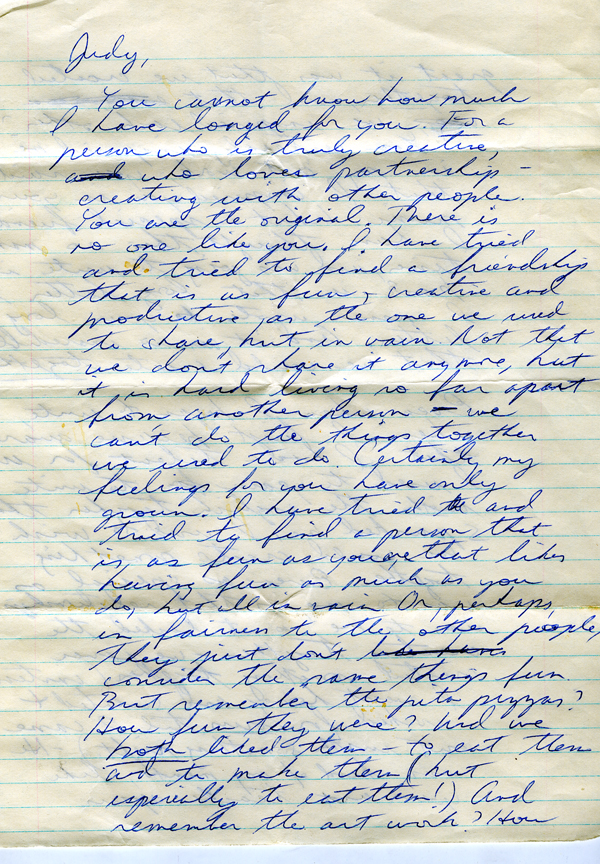 Judy,
You cannot know how much
I have longed for you. For a
person who is truly creative,
and who loves partnership -
creating with other people.
You are the original. There is
no one like you. I have tried
and tried to find a friendship
that is as fun, creative and
productive as the one we used
to share, but in vain. Not that
we don't share it anymore, but
it is hard living so far apart
from another person - we
can't do the things together
we used to do. Certainly my
feelings for you have only
grown. I have tried and
tried to find a person that
is as fun as you are that likes
having fun as much as you
do, but all in vain. Or, perhaps,
in fairness to the other people,
they just don't
consider the same things fun.
But remember the pita pizzas?
How fun they were? And we
both liked them - to eat them
and to make them (but
especially to eat them!) And
remember the art work? How